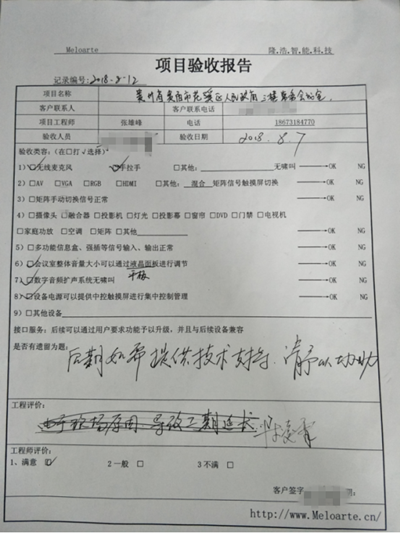 Meloarte 隆.浩.智.能.科.技
项目验收报告
记录编号: 2018-8-12
项目名称 贵州省贵阳市花溪区人民政府二楼常委会议室
客户联系人 客户联系电话
项目工程师 张继峰 电话 18673184770
验收人员 验收日期 2018.8.7
验收类容:(在□打√选择)*
1)☑无线麦克风 ☑手拉手 □其他: 无啸叫 OK NG
2)□AV □VGA □RGB □HDMI □其他: 混合 矩阵信号触摸屏切换 OK NG
3)□矩阵手动切换信号正常 OK NG
4)□摄像头 □融合器 □投影机 □灯光 □投影幕 □窗帘 □DVD □门禁 □电视机
□家庭功放 □空调 □矩阵 □其他: OK NG
5)□多功能信息盒、强插等信号输入、输出正常 OK NG
6)☑会议室整体音量大小可以通过液晶面板进行调节 OK NG
平板
7)☑数字音频扩声系统无啸叫 OK NG
8)☑设备电源可以提供中控触摸屏进行集中控制管理 OK NG
9)□其他设备 OK NG
接口服务:后续可以通过用户要求功能予以升级,并且与后续设备兼容
是否有遗留为题:
后期如需提供技术支持、请予以协助
工程评价:
现场原因 导致工期延长
工程师评价:
1、满意 ☑ 2 一般 □ 3 不满 □
客户签字
http://www.Meloarte.cn/